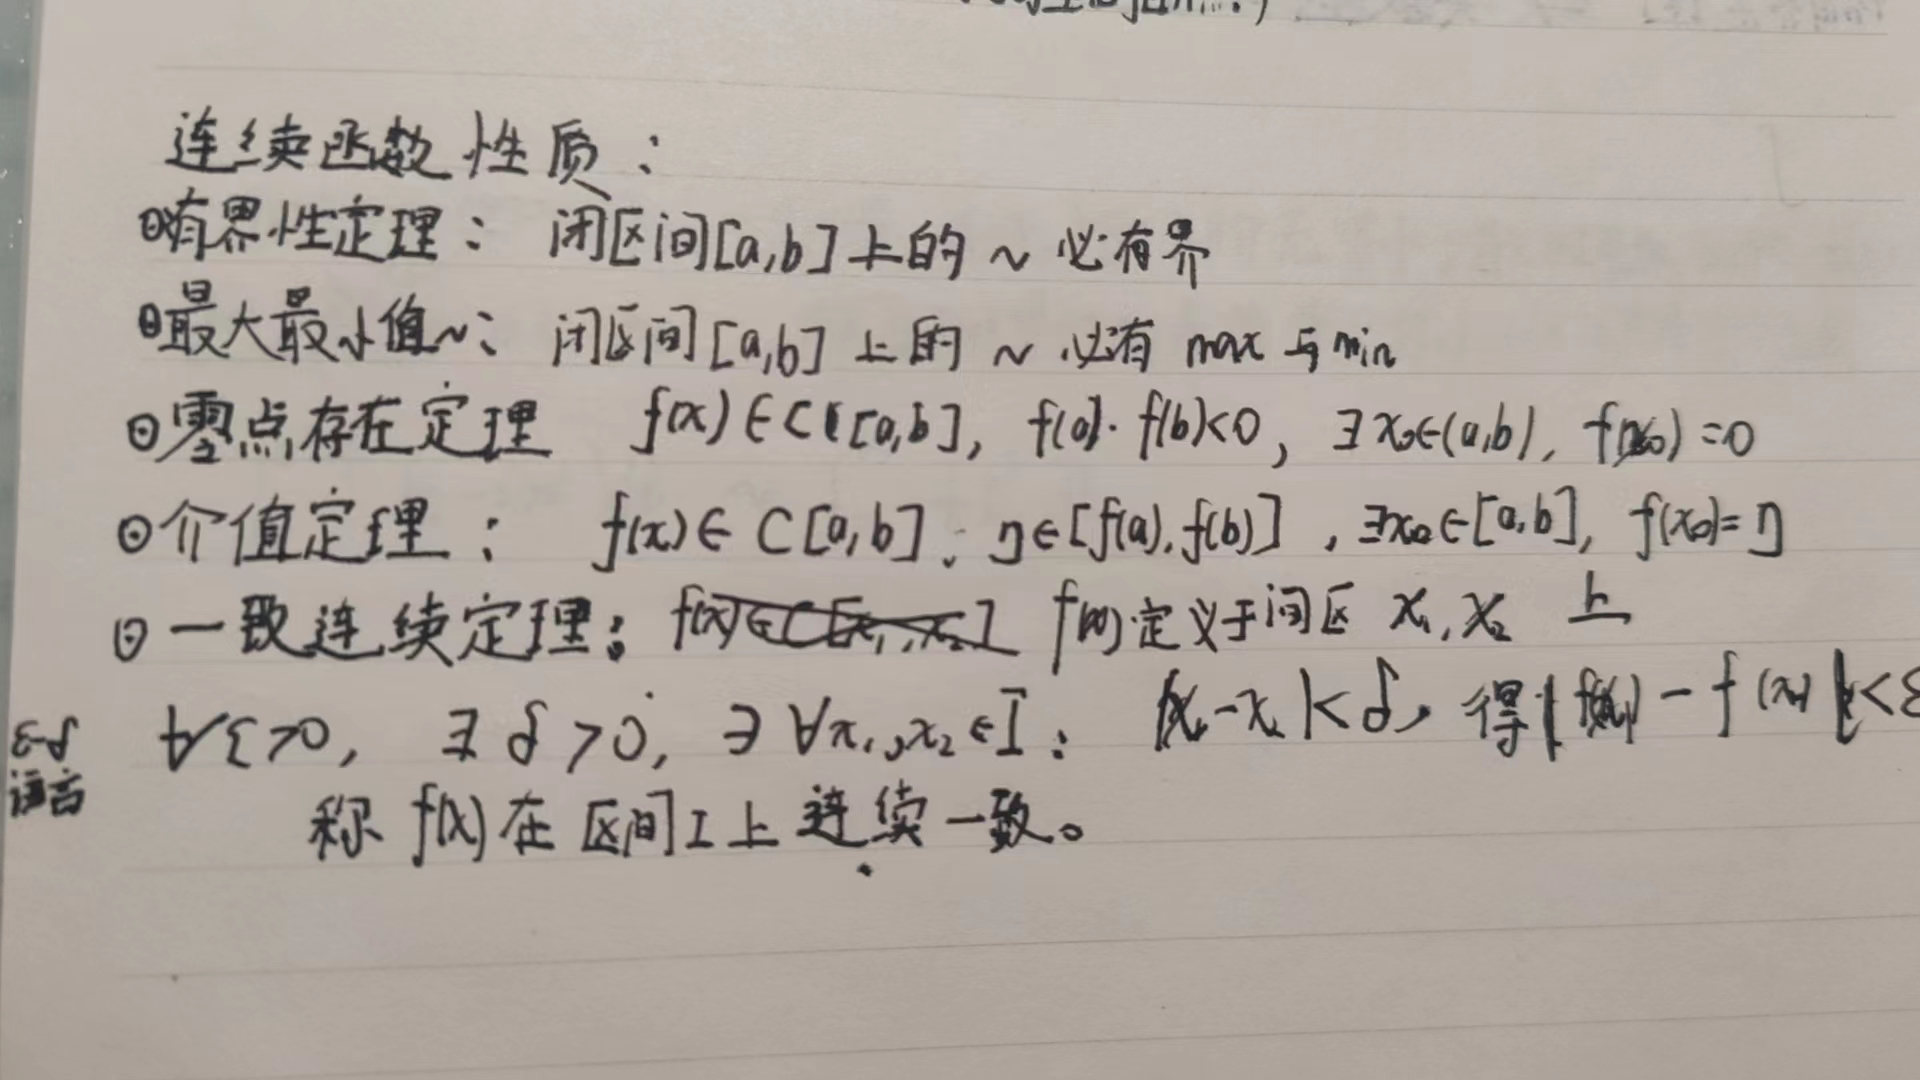 连续函数性质：
⊙有界性定理： 闭区间[a,b]上的 ~ 必有界
⊙最大最小值~： 闭区间[a,b]上的 ~ 必有 max 与 min
⊙零点存在定理 f(x)∈C([a,b], f(a)·f(b)<0, ∃x₀∈(a,b), f(x₀)=0
⊙介值定理： f(x)∈C[a,b], η∈[f(a),f(b)], ∃x₀∈[a,b], f(x₀)=η
⊙一致连续定理： f(x)定义于间区 x₁,x₂ 上
ε-δ 语言 ∀ε>0, ∃δ>0, ∋ ∀x₁,x₂∈I: |x₁-x₂|<δ, 得|f(x₁)-f(x₂)|<ε
称 f(x)在区间I上连续一致。